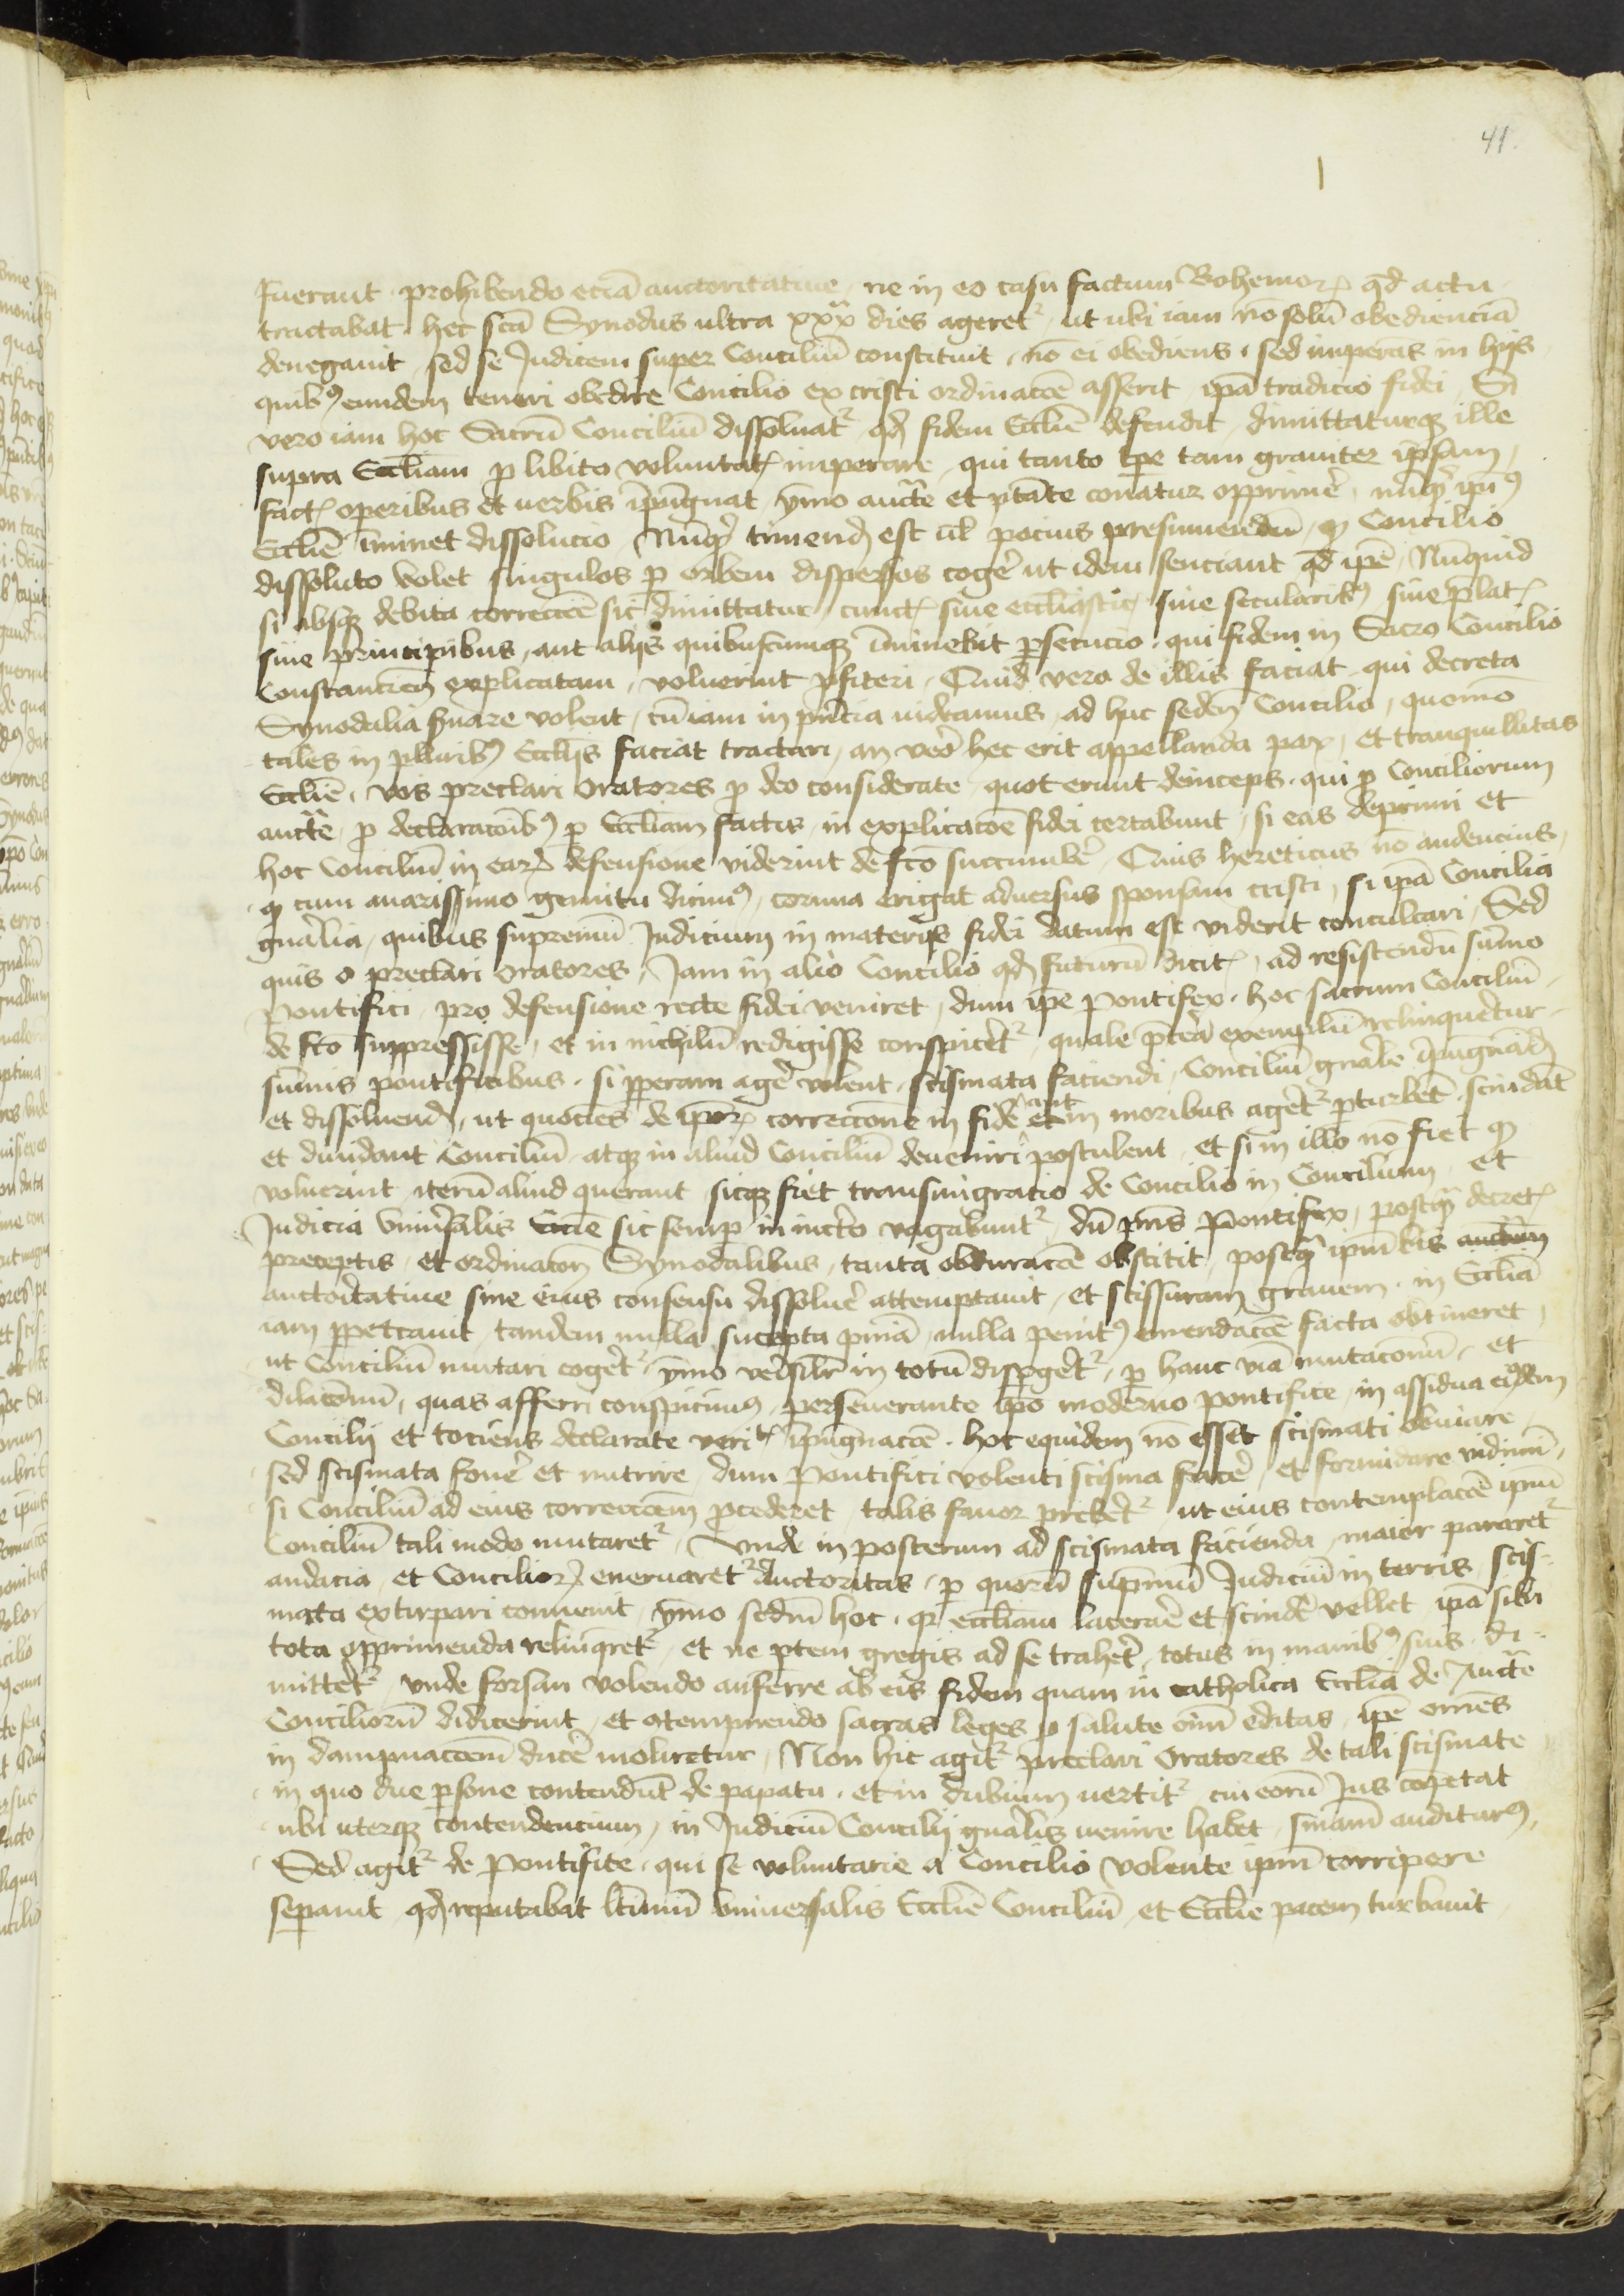 41.
fuerant prohibendo eciā auctoritative, ne in eo casu factum Bohemoꝝ qd actu
tractabat hec scā Synodus ultra xxx dies ageret², ut ubi iam nō solū obedienciā
denegauit, sed se Judicem super Conciliū constituit, nō ei obediens, sed imperās in hijs
quibꝰ eundem teneri obedire Concilio ex cristi ordinacōe asserit, ipā tradicio fidei, Si
vero iam hoc Sacrū Conciliū dissoluat², qđ fidem Ecclie defendit, dimittaturqꝫ ille
supra Eccliam p libito voluntatꝭ imperare, qui tanto tpe tam grauiter ipsam
factꝭ operibus et verbis īpugnat, ymo aucte et ptāte conatur opprimē, nūqͥd ipiꝰ
Ecclie īminet dissolucio, Nūqͥd timend est ul pocius presumendū, qꝫ Concilio
dissoluto volet singulos p orbem dispersos cogē ut idem senciant qd ipē, Nunquid
si absqꝫ debita correccōe sic dimittatur, cunctꝭ siue eccliasticꝭ siue secularibꝰ siue platꝭ
siue principibus, aut alijs quibuscumqꝫ īminebit psecucio, qui fidem in Sacro Concilio
Constancien̄ explicatam, voluerint pfiteri, Quid vero de illis faciat qui decreta
Synodalia fuare volent, cū iam in pn̄cia uideamus, ad huc seden̄ Concilio, quomō
tales in pluribꝰ Eccliis faciat tractari, an vero hec erit appellanda pax, et tranquillitas
Ecclie, vos preclari Oratores p deo considerate, quot erunt deinceps, qui p Conciliorum
aucte, p declaracōibꝰ p Eccliam factis, in explicacōe fidei certabunt, si eas deprimi et
hoc Conciliū in eaꝝ defensione viderint de fco succumbē, Quis hereticus nō audencius,
qꝫ cum amarissimo gemitu dicimꝰ, cornua erigat aduersus sponsam cristi, si ipā Concilia
gnralia, quibus supremū Judicium in materijs fidei datum est viderit conculcari, Sed
quis o preclari Oratores, Jam in alio Concilio qđ futurū dicitꝭ, ad resistendū sūmo
pontifici, pro defensione recte fidei veniret, dum ipe pontifex, hoc sacrum Conciliū
de fco suppressisse, et in nichilū redigisse conspicēt², quale p̄terea exemplū relinquēretur
sūmis pontificibus, si pperam agē volent, scismata faciendi, Conciliū gnrale īpugnādi
et dissoluendi, ut quocies de ipoꝝ correccione in fide aut et in moribus agēt² pturbet scindāt
et diuidant Conciliū, atqꝫ in aliud Conciliū deueniri postulent, et si in illo nō fiet qꝫ
voluerint, iterū aliud querant, sicqꝫ fiet transmigracio de Concilio in Concilium, et
Judicia Vniuersalis Ecclie sic semp in incto vagabunt², dū pn̄s Pontifex, postqͥ decretꝭ
preceptis, et ordinacōn Synodalibus, tanta obduracōe obstitit, postqͥ ipm̄ bis auctūm
auctoritatiue sine eius consensu dissoluē attemptauit, et scissuram grauem, in Eccliā
iam ppetrauit, tandem nulla suscepta pnīa, nulla penitꝰ emendacōe facta obtineret,
ut Conciliū mutari cogēt², ymo verisilr in totū dispgēt², p hanc viā mutacōnū, et
dilacōnū, quas afferri conspicimꝰ, perseuerante ipo moderno pontifice, in assidua eiꝰdem
Concilij et tociens declarate veritꝭ īpugnacōe, hoc equidem nō esset scismati obuiare,
sed scismata fouē et nutrire, dum pontifici volenti scisma facē, et formidare vidimꝰ,
si Conciliū ad eius correccōem pcederet, talis fauor prebēt² ut eius contemplacōe ipm̄
Conciliū tali modo mutaret², Unde in posterum ad scismata facienda, maior pararet²
audacia, et Concilioꝝ eneruaret² auctoritas, p quorū supmū Judiciū in terris, scis-
mata extirpari conuenit, ymo sedm̄ hoc, qꝫ eccliam lacerare et scindē vellet, ipā sibi
tota opprimenda relinqret², et ne ptem gregis ad se trahēt, totus in manibꝰ suis, di-
mittēt², Vnde forsan volendo auferre ab eis fidem quam in catholica Ecclia de Aucte
Conciliorū didicerint, et ꝯtempnendo sacras leges p salute oīm editas, ipē omēs
in dampnacōem ducē moliretur, Non hic agit² preclari Oratores de tali scismate
in quo due psone contendūt de papatu, et in dubium vertit² cui eorū Jus cōpetat
ubi uterqꝫ contendencium, in Judiciū Concilij gnralis uenire habet, sniam auditurꝰ,
Sed agit² de Pontifice, qui se voluntarie a Concilio volente ipm̄ corripere
sepauit, qđ reputabat ltimū vniuersalis Ecclie Conciliū, et Ecclie pacem turbauit